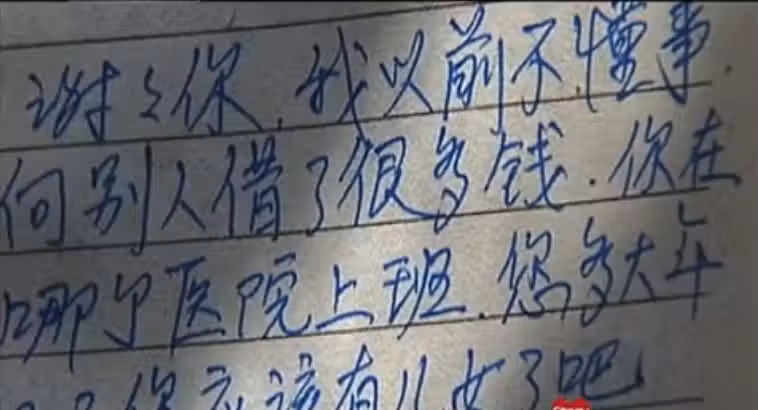 谢々你,我以前不懂事.
向别人借了很多钱.你在
哪个医院上班.您多大年
你应该有儿女了吧